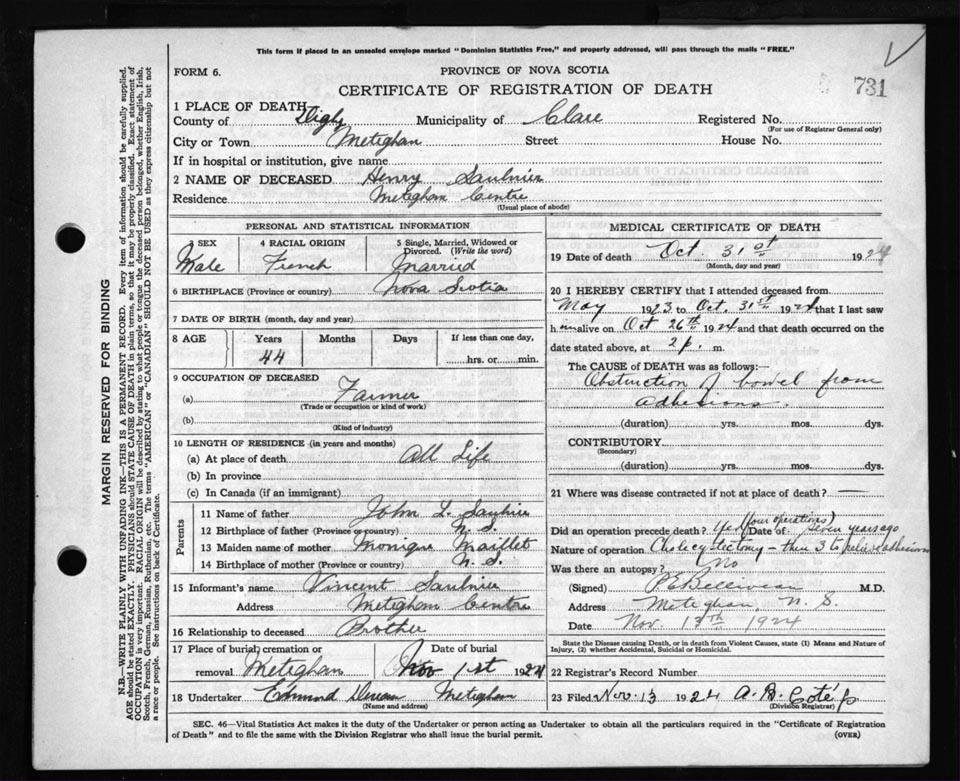 This form if placed in an unsealed envelope marked "Dominion Statistics Free," and properly addressed, will pass through the mails "FREE."
FORM 6.
PROVINCE OF NOVA SCOTIA
CERTIFICATE OF REGISTRATION OF DEATH
731
1 PLACE OF DEATH
County of Digby Municipality of Clare Registered No.
(For use of Registrar General only)
City or Town Meteghan Street House No.
If in hospital or institution, give name
2 NAME OF DECEASED Henry Saulnier
Residence Meteghan Centre
(Usual place of abode)
PERSONAL AND STATISTICAL INFORMATION
3 SEX 4 RACIAL ORIGIN 5 Single, Married, Widowed or Divorced. (Write the word)
Male French Married
6 BIRTHPLACE (Province or country) Nova Scotia
7 DATE OF BIRTH (month, day and year)
8 AGE Years Months Days If less than one day,
44 hrs. or min.
9 OCCUPATION OF DECEASED
(a) Farmer
(Trade or occupation or kind of work)
(b)
(Kind of industry)
10 LENGTH OF RESIDENCE (in years and months)
(a) At place of death All Life
(b) In province
(c) In Canada (if an immigrant)
Parents
11 Name of father John L. Saulnier
12 Birthplace of father (Province or country) N. S.
13 Maiden name of mother Monique Maillet
14 Birthplace of mother (Province or country) N. S.
15 Informant's name Vincent Saulnier
Address Meteghan Centre
16 Relationship to deceased Brother
17 Place of burial, cremation or removal Meteghan Date of burial Nov 1st 1924
18 Undertaker Edmund Meteghan
(Name and address)
MEDICAL CERTIFICATE OF DEATH
19 Date of death Oct. 31st 1924
(Month, day and year)
20 I HEREBY CERTIFY that I attended deceased from
May 1923 to Oct. 31st 1924 that I last saw
him alive on Oct 26th 1924 and that death occurred on the
date stated above, at 2 p. m.
The CAUSE of DEATH was as follows:—
Obstruction of bowel from
adhesions.
(duration) yrs. mos. dys.
CONTRIBUTORY
(Secondary)
(duration) yrs. mos. dys.
21 Where was disease contracted if not at place of death? —
Did an operation precede death? Yes (four operations) Date of: Seven years ago
Nature of operation Cholecystectomy – then 3 to relieve adhesions
Was there an autopsy? No
(Signed) P.E. Belliveau M.D.
Address Meteghan, N. S.
Date Nov. 13th 1924
State the Disease causing Death, or in death from Violent Causes, state (1) Means and Nature of Injury, (2) whether Accidental, Suicidal or Homicidal.
22 Registrar's Record Number
23 Filed Nov. 13 1924 A. B. Coté
(Division Registrar)
SEC. 46—Vital Statistics Act makes it the duty of the Undertaker or person acting as Undertaker to obtain all the particulars required in the "Certificate of Registration
of Death" and to file the same with the Division Registrar who shall issue the burial permit.
(OVER)
MARGIN RESERVED FOR BINDING
N.B.—WRITE PLAINLY WITH UNFADING INK—THIS IS A PERMANENT RECORD. Every item of information should be carefully supplied.
AGE should be stated EXACTLY. PHYSICIANS should STATE CAUSE OF DEATH in plain terms, so that it may be properly classified. Exact statement of
OCCUPATION is very important. RACIAL ORIGIN will be described by stating to what people or tongue the deceased person belonged, whether English, Irish,
Scotch, French, German, Russian, Ruthenian, etc. The terms "AMERICAN" or "CANADIAN" SHOULD NOT BE USED as they express citizenship but not
a race or people. See instructions on back of Certificate.